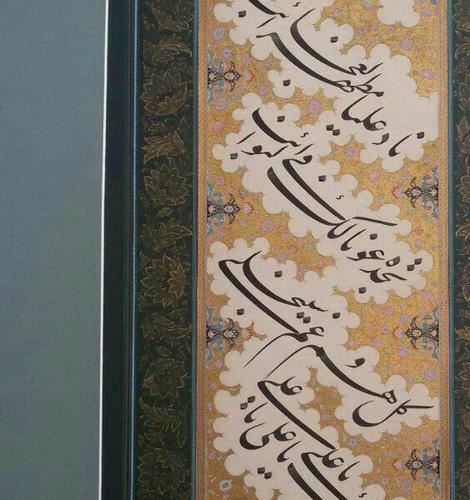 ناد علیا مظهر العجائب
تجده عونا لک فی النوائب
کل هم و غم سینجلی
یا علی یا علی یا علی